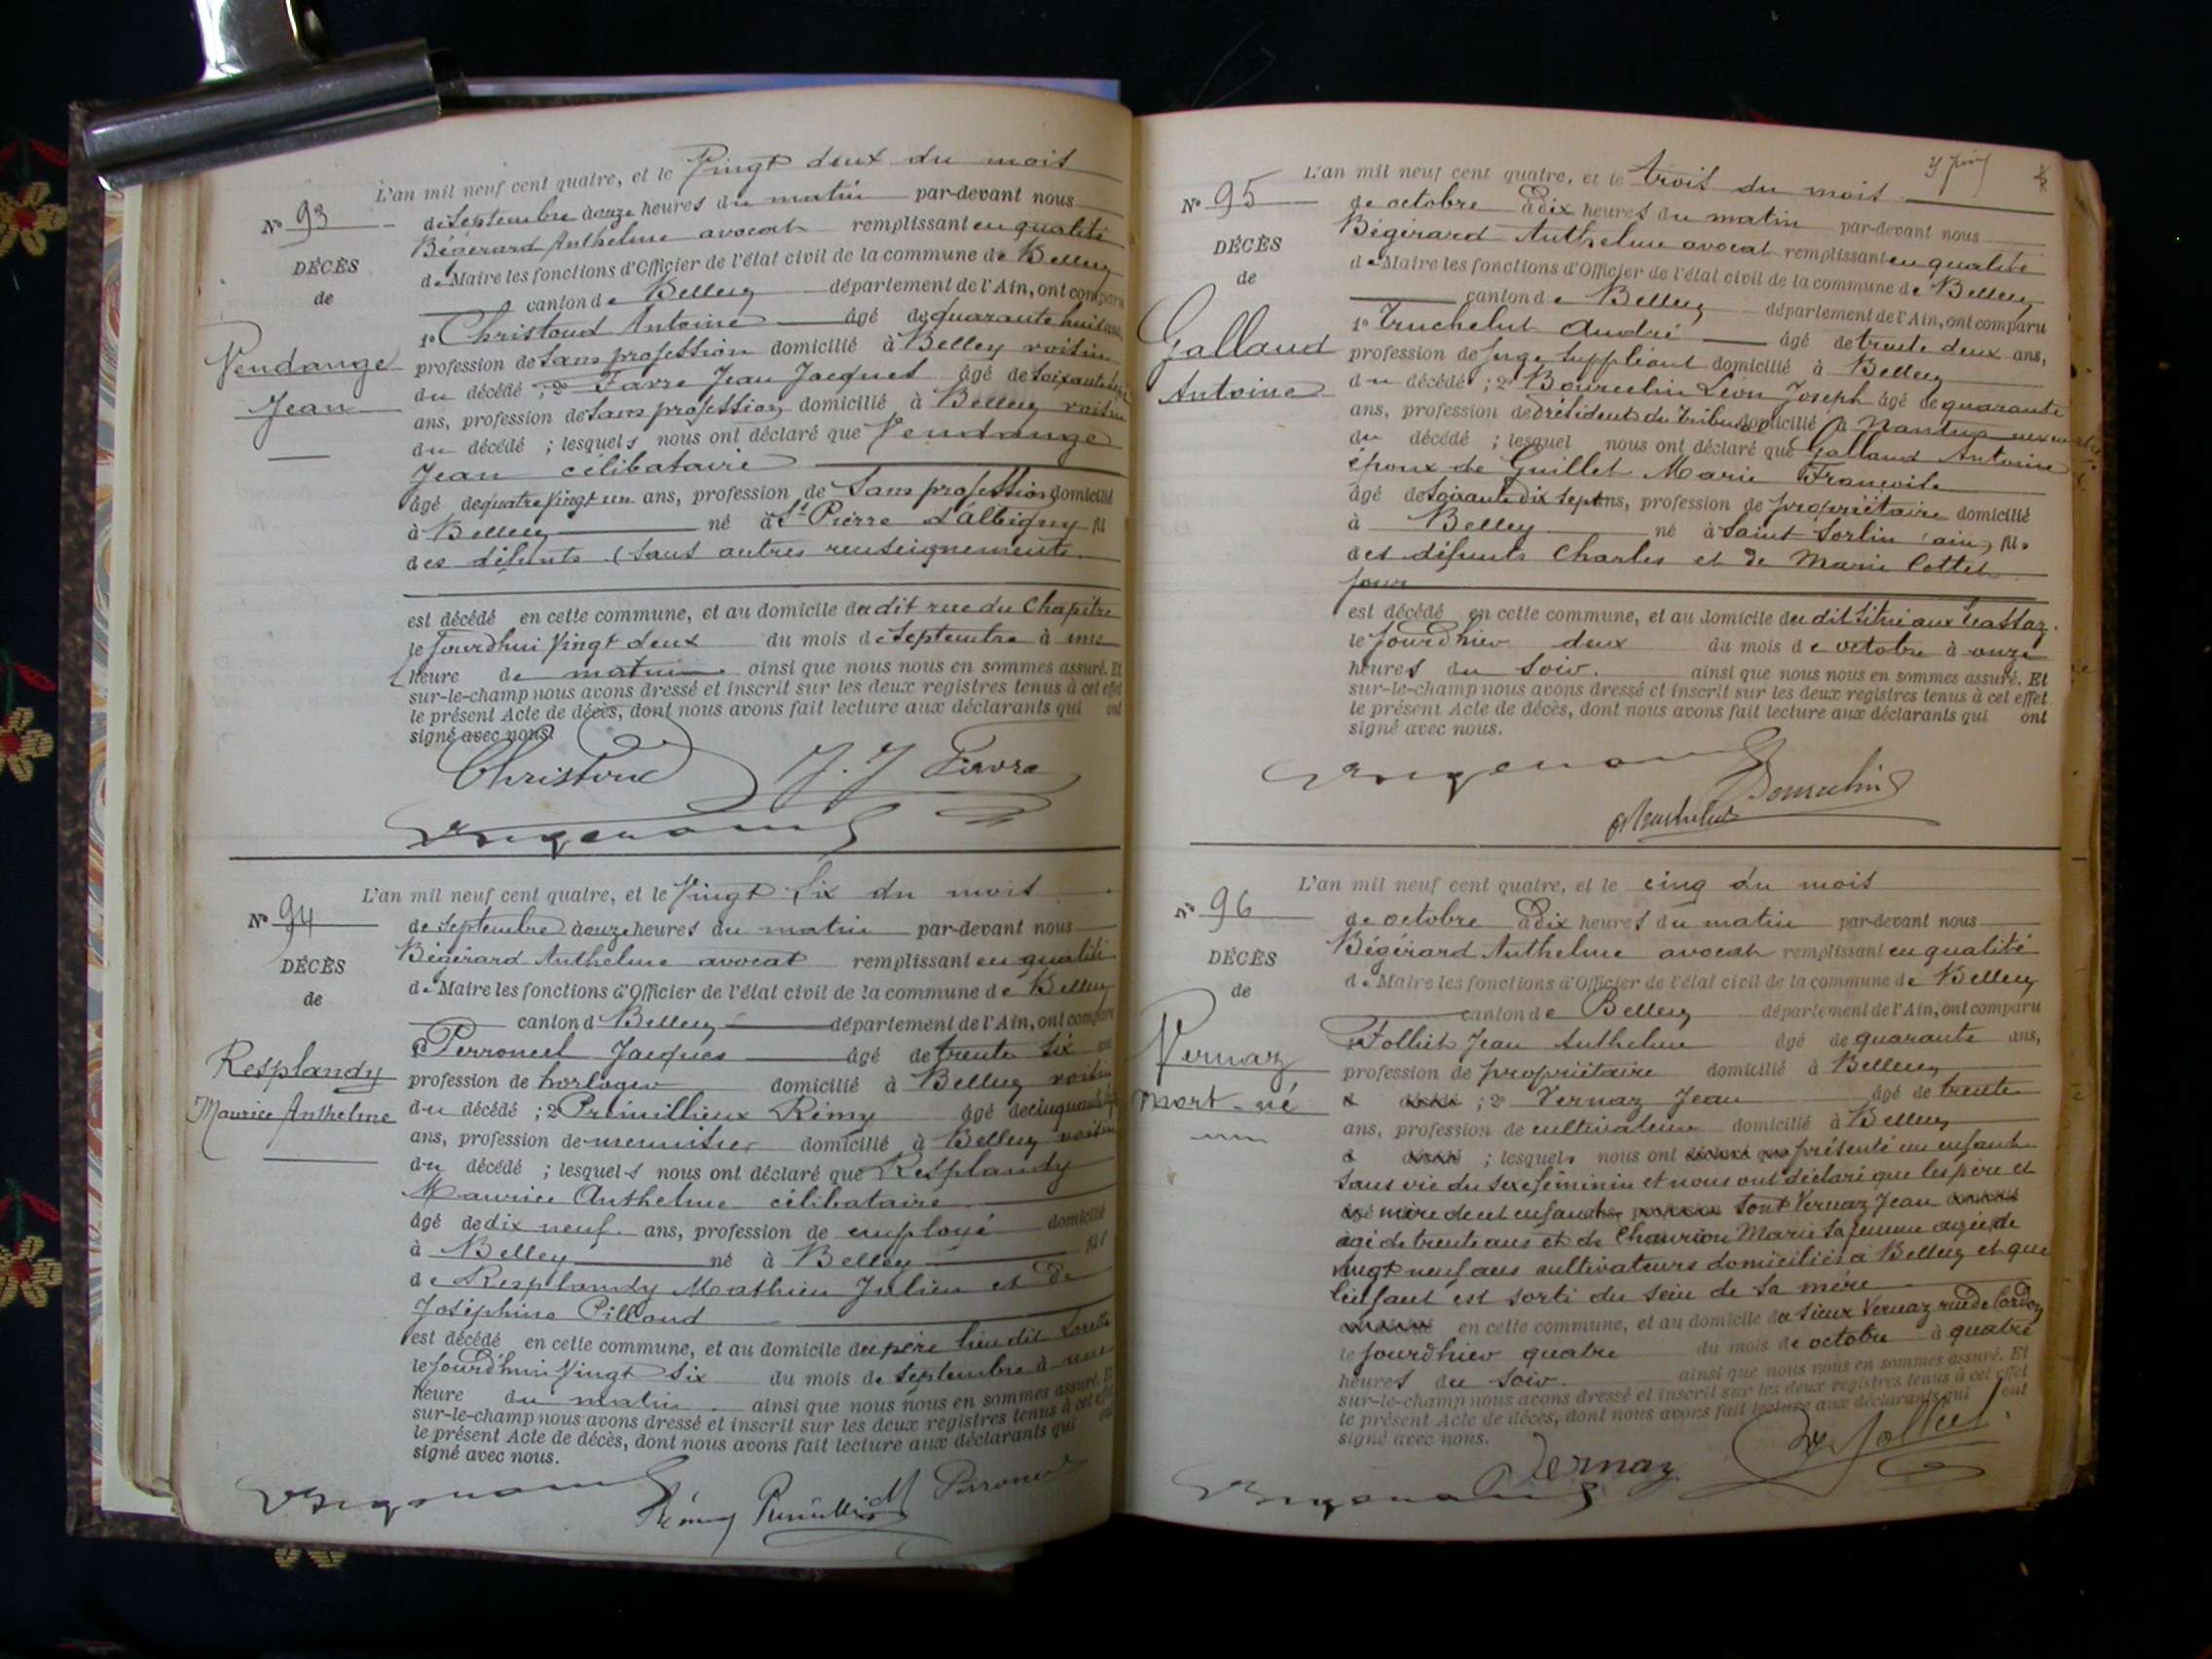 L'an mil neuf cent quatre, et le Vingt deux du mois
N° 93
de Septembre à onze heures du matin par-devant nous
Bégérard Anthelme avocat remplissant en qualité
DÉCÈS
de Maire les fonctions d'Officier de l'état civil de la commune de Belley
de
canton de Belley département de l'Ain, ont comparu
1° Christoud Antoine âgé de quarante huit ans,
Vendange
profession de Sans profession domicilié à Belley voisin
du décédé ; 2° Favre Jean Jacques âgé de soixante
Jean
ans, profession de Sans profession domicilié à Belley voisin
du décédé ; lesquels nous ont déclaré que Vendange
Jean célibataire
âgé de quatre vingt un ans, profession de Sans profession domicilié
à Belley né à St Pierre d'Albigny fils
des défunts (sans autres renseignements
est décédé en cette commune, et au domicile du dit rue du Chapitre
le jourd'hui Vingt deux du mois de Septembre à une
heure de matin ainsi que nous nous en sommes assuré. Et
sur-le-champ nous avons dressé et inscrit sur les deux registres tenus à cet effet
le présent Acte de décès, dont nous avons fait lecture aux déclarants qui ont
signé avec nous.
Christoud J. J Favre
L'an mil neuf cent quatre, et le Vingt Six du mois
N° 94
de Septembre à onze heures du matin par-devant nous
Bégérard Anthelme avocat remplissant en qualité
DÉCÈS
de Maire les fonctions d'Officier de l'état civil de la commune de Belley
de
canton d Belley département de l'Ain, ont comparu
Perroncel Jacques âgé de trente six ans
Resplandy
profession de horloger domicilié à Belley voisin
Maurice Anthelme
du décédé ; 2° Prémillieux Rémy âgé de cinquante
ans, profession de menuisier domicilié à Belley voisin
du décédé ; lesquels nous ont déclaré que Resplandy
Maurice Anthelme célibataire
âgé de dix neuf ans, profession de employé domicilié
à Belley né à Belley fils
de Resplandy Mathieu Julien et de
Joséphine Pilloud
est décédé en cette commune, et au domicile du père lieu dit
le jourd'hui Vingt Six du mois de Septembre à une
heure du matin ainsi que nous nous en sommes assuré. Et
sur-le-champ nous avons dressé et inscrit sur les deux registres tenus à cet effet
le présent Acte de décès, dont nous avons fait lecture aux déclarants qui ont
signé avec nous.
Rémy
L'an mil neuf cent quatre, et le trois du mois
N° 95
de octobre à dix heures du matin par-devant nous
Bégérard Anthelme avocat remplissant en qualité
DÉCÈS
de Maire les fonctions d'Officier de l'état civil de la commune de Belley
de
canton de Belley département de l'Ain, ont comparu
1° Truchelut André âgé de trente deux ans,
Galland
profession de Juge Suppléant domicilié à Belley
Antoine
du décédé ; 2° Bourcelin Léon Joseph âgé de quarante
ans, profession de Président du Tribunal domicilié à Nantua
du décédé ; lesquel nous ont déclaré que Galland Antoine
époux de Guillet Marie Françoise
âgé de soixante dix sept ans, profession de propriétaire domicilié
à Belley né à Saint Sorlin (ain) fils
des défunts Charles et de Marie Cottet
est décédé en cette commune, et au domicile du dit
le jourd'hier deux du mois de octobre à onze
heures du soir. ainsi que nous nous en sommes assuré. Et
sur-le-champ nous avons dressé et inscrit sur les deux registres tenus à cet effet
le présent Acte de décès, dont nous avons fait lecture aux déclarants qui ont
signé avec nous.
L'an mil neuf cent quatre, et le cinq du mois
N° 96
de octobre à dix heures du matin par-devant nous
Bégérard Anthelme avocat remplissant en qualité
DÉCÈS
de Maire les fonctions d'Officier de l'état civil de la commune de Belley
de
canton de Belley département de l'Ain, ont comparu
Folliet Jean Anthelme âgé de quarante ans,
Vernaz
profession de propriétaire domicilié à Belley
mort-né
; 2° Vernaz Jean âgé de trente
ans, profession de cultivateur domicilié à Belley
; lesquels nous ont présenté un enfant
Sans vie du sexe féminin et nous ont déclaré que les père et
mère de cet enfant sont Vernaz Jean
âgé de trente ans et de Marie sa femme agée de
vingt neuf ans cultivateurs domiciliés à Belley et que
l'enfant est sorti du sein de sa mère
en cette commune, et au domicile du sieur Vernaz rue de
le jourd'hier quatre du mois de octobre à quatre
heures du soir. ainsi que nous nous en sommes assuré. Et
sur-le-champ nous avons dressé et inscrit sur les deux registres tenus à cet effet
le présent Acte de décès, dont nous avons fait lecture aux déclarants qui ont
signé avec nous.
Vernaz